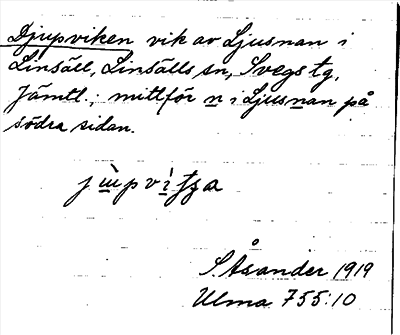 Djupviken vik av Ljusnan i
Linsäll, Linsälls sn, Svegs tg,
Jämtl.; mittför n i Ljusnan på
södra sidan.
S. Åsander 1919
Ulma 755:10